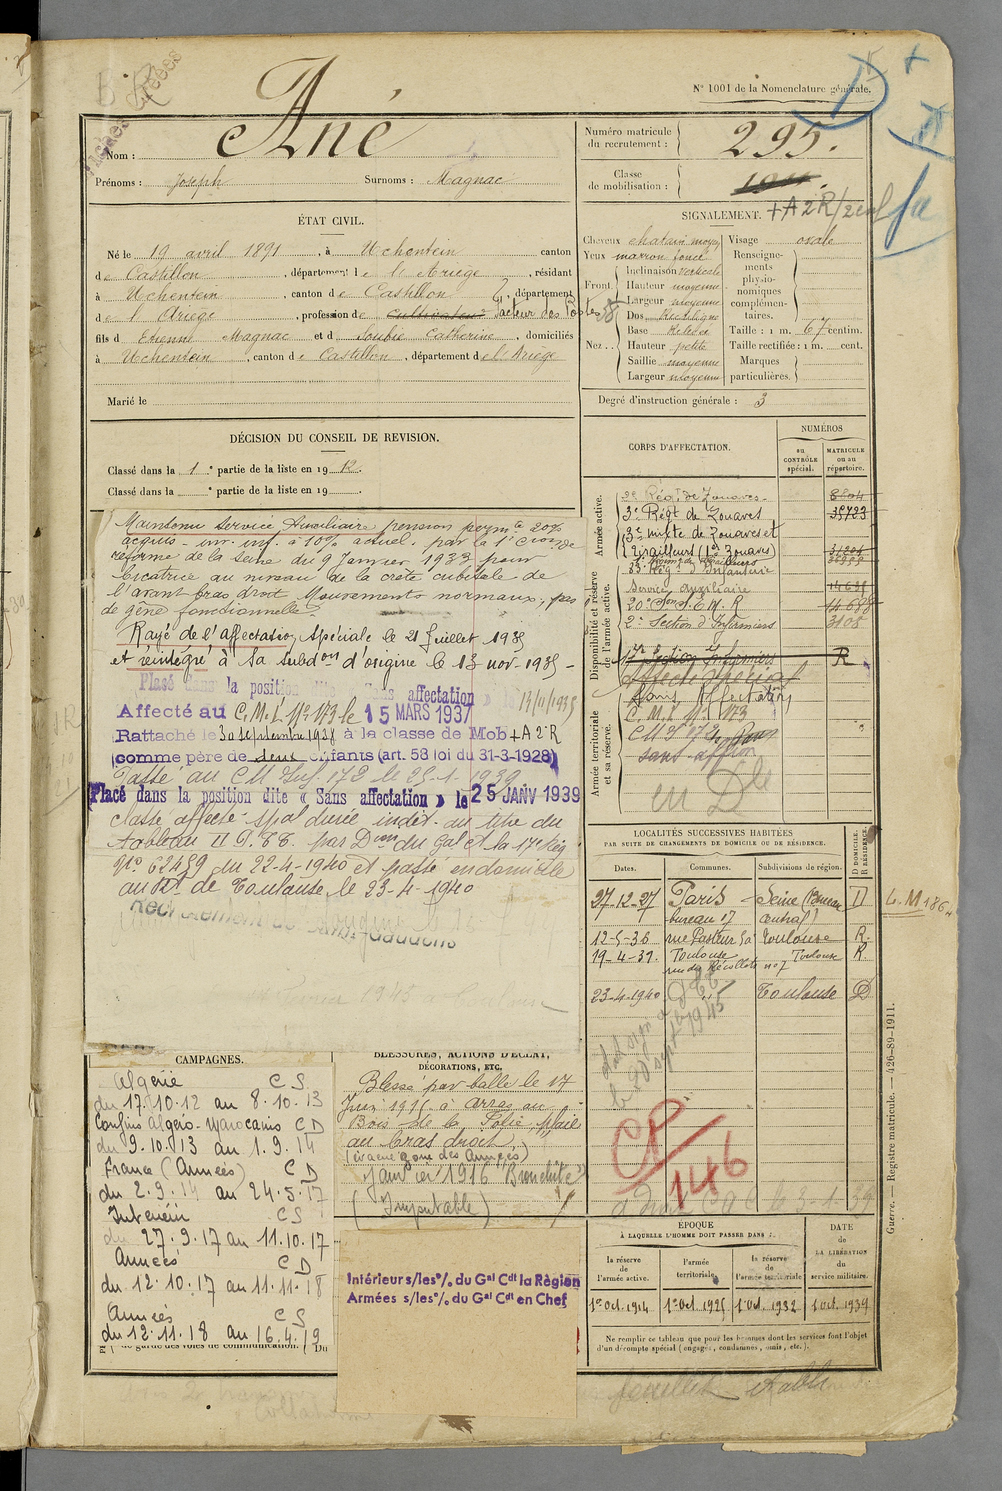 N° 1001 de la Nomenclature générale.
Nom : Ané
Prénoms : Joseph Surnoms : Magnac
Numéro matricule
du recrutement : 295.
Classe
de mobilisation :
+A2R/2enf
ÉTAT CIVIL.
Né le 19 avril 1891, à Uchentein canton
de Castillon, département de l'Ariège, résidant
à Uchentein, canton de Castillon, département
de l'Ariège, profession de cultivateur facteur des Postes
fils d Etienne Magnac et d Soubie Catherine, domiciliés
à Uchentein, canton de Castillon, département de l'Ariège
Marié le
SIGNALEMENT.
Cheveux chatain moyen
Yeux marron foncé
Front.
Inclinaison verticale
Hauteur moyenne
Largeur moyenne
Nez..
Dos Rectiligne
Base Relevée
Hauteur petite
Saillie moyenne
Largeur moyenne
Visage ovale
Renseigne-
ments
physio-
nomiques
complémen-
taires.
Taille : 1 m. 67 centim.
Taille rectifiée : 1 m. cent.
Marques
particulières.
Degré d'instruction générale : 3
DÉCISION DU CONSEIL DE REVISION.
Classé dans la 1e partie de la liste en 1912.
Classé dans la e partie de la liste en 19 .
Maintenu Service Auxiliaire pension perm.te 20%
acquis - inv. inf. à 10% actuel. par la 1e Cion de
réforme de la Seine du 9 Janvier 1933 pour
Cicatrice au niveau de la crête cubitale de
l'avant bras droit. Mouvements normaux, pas
de gêne fonctionnelle
Rayé de l'affectation Spéciale le 21 Juillet 1935
et réintégré à sa subdon d'origine le 13 nov. 1935 -
Plasé dans la position dite Sans affectation le 14/11/1935
Affecté au C.M.I. N° 173 le 15 MARS 1937
Rattaché le 30 septembre 1938 à la classe de Mob +A2R
(comme père de deux enfants (art. 58 loi du 31-3-1928)
Passé au CM Inf 172 le 25-1-1939
Placé dans la position dite « Sans affectation » le 25 JANV 1939
Classé affecté spal durée indét. au titre du
tableau II P.T.T. par Don du Gal Ct la 17e Rég
N° 62489 du 22-4-1940 et passé en domicile
au Bt. de Toulouse le 23-4-1940
Recrutement de Saint-Gaudens
CORPS D'AFFECTATION.
NUMÉROS
au
CONTRÔLE
spécial.
MATRICULE
ou au
répertoire.
Armée active.
3e Régt de Zouaves -
3e Régt de Zouaves 38723
3e mixte de Zouaves et
Tirailleurs (1e Zouaves)
83e Rég. d'Infanterie
Disponibilité et réserve
de l'armée active.
Service Auxiliaire 14631
20e Son S.E.M.R 14688
2e Section d'Infirmiers 3105
17e Section Infirmiers R
Affecté Spécial
Sans Affectation
Armée territoriale
et sa réserve.
C.M.I. N° 173
sans affon
en Dle
LOCALITÉS SUCCESSIVES HABITÉES
PAR SUITE DE CHANGEMENTS DE DOMICILE OU DE RÉSIDENCE.
Dates. Communes. Subdivisions de région. D DOMICILE. R RÉSIDENCE.
27-12-27 Paris - Seine (Bureau D
bureau 17 central)
12-5-36 rue Pasteur Toulouse R.
19-4-37. Toulouse Toulouse R
rue des Récollets n° 7
23-4-1940 Toulouse D
L.M 186
CP/146
le 3-1-39
CAMPAGNES.
Algérie CS
du 17.10.12 au 8.10.13
Confins Algéro-Marocains CD
du 9.10.13 au 1.9.14
France (Armées) CD
du 2.9.14 au 24.5.17
Intérieur CS
du 27.9.17 au 11.10.17
Armées CD
du 12.10.17 au 11.11.18
Armées CS
du 12.11.18 au 16.4.19
de garde des voies de communication. Du
BLESSURES, ACTIONS D'ÉCLAT,
DÉCORATIONS, ETC.
Blessé par balle le 17
Juin 1915 à Arras au
Bois de la Folie. Plaie
au bras droit.
(évacué zone des Armées)
Janvier 1916 Bronchite
(Imputable)
Intérieur s/les % du Gal Cdt la Région
Armées s/les % du Gal Cdt en Chef
ÉPOQUE
À LAQUELLE L'HOMME DOIT PASSER DANS :
la réserve
de
l'armée active.
l'armée
territoriale.
la réserve
de
l'armée territoriale
DATE
de
LA LIBÉRATION
du
service militaire.
1er Oct. 1914 1er Oct. 1925 1 Oct. 1932 1 Oct. 1939
Ne remplir ce tableau que pour les hommes dont les services font l'objet
d'un décompte spécial (engagés, condamnés, omis, etc.).
Guerre. — Registre matricule. — 426-89-1911.
feuillet établi